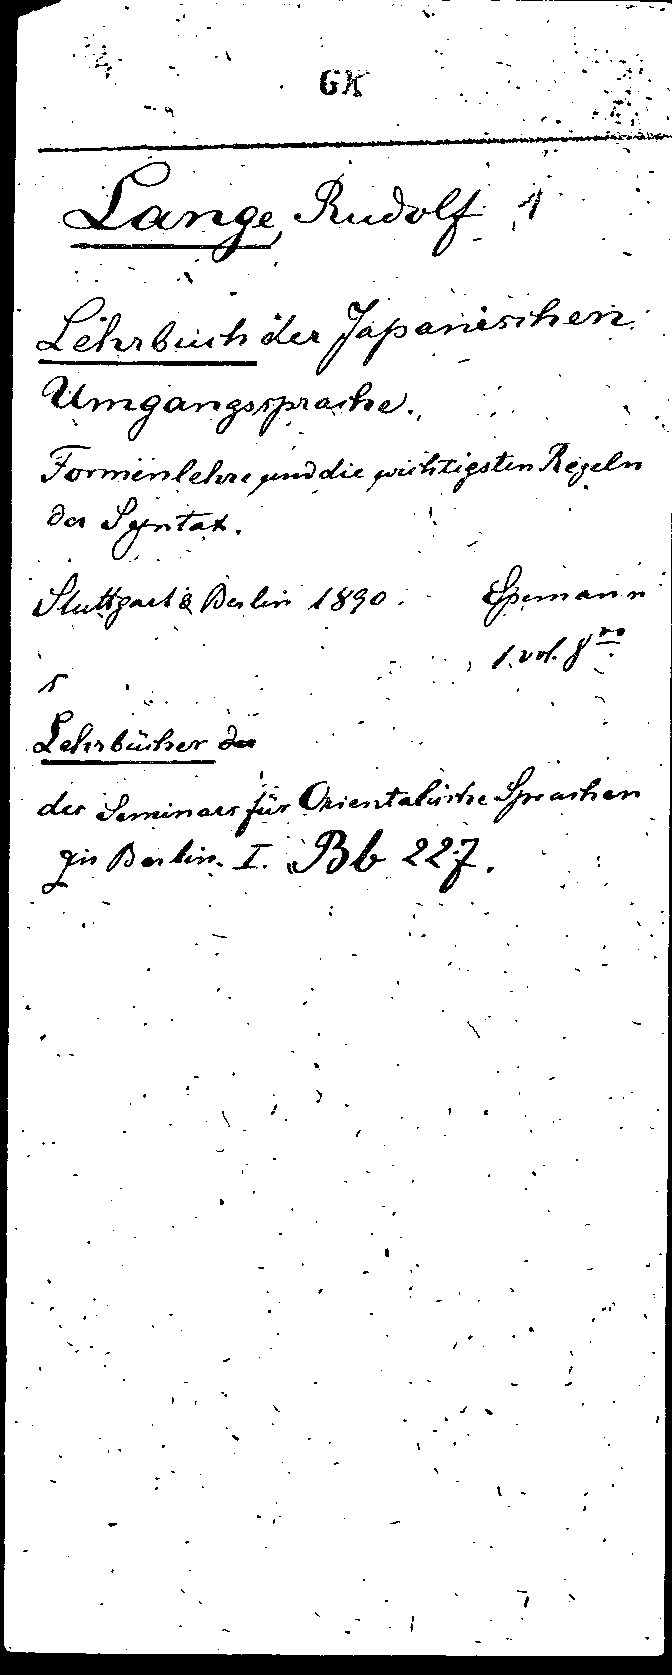 GK
Lange, Rudolf 4
Lehrbuch der Japanischen
Umgangssprache.
Formenlehre und die wichtigsten Regeln
der Syntax.
Stuttgart & Berlin 1890. Spemann
1 vol. 8vo
Lehrbücher der
des Seminars für Orientalische Sprachen
zu Berlin. I. Bb 227.